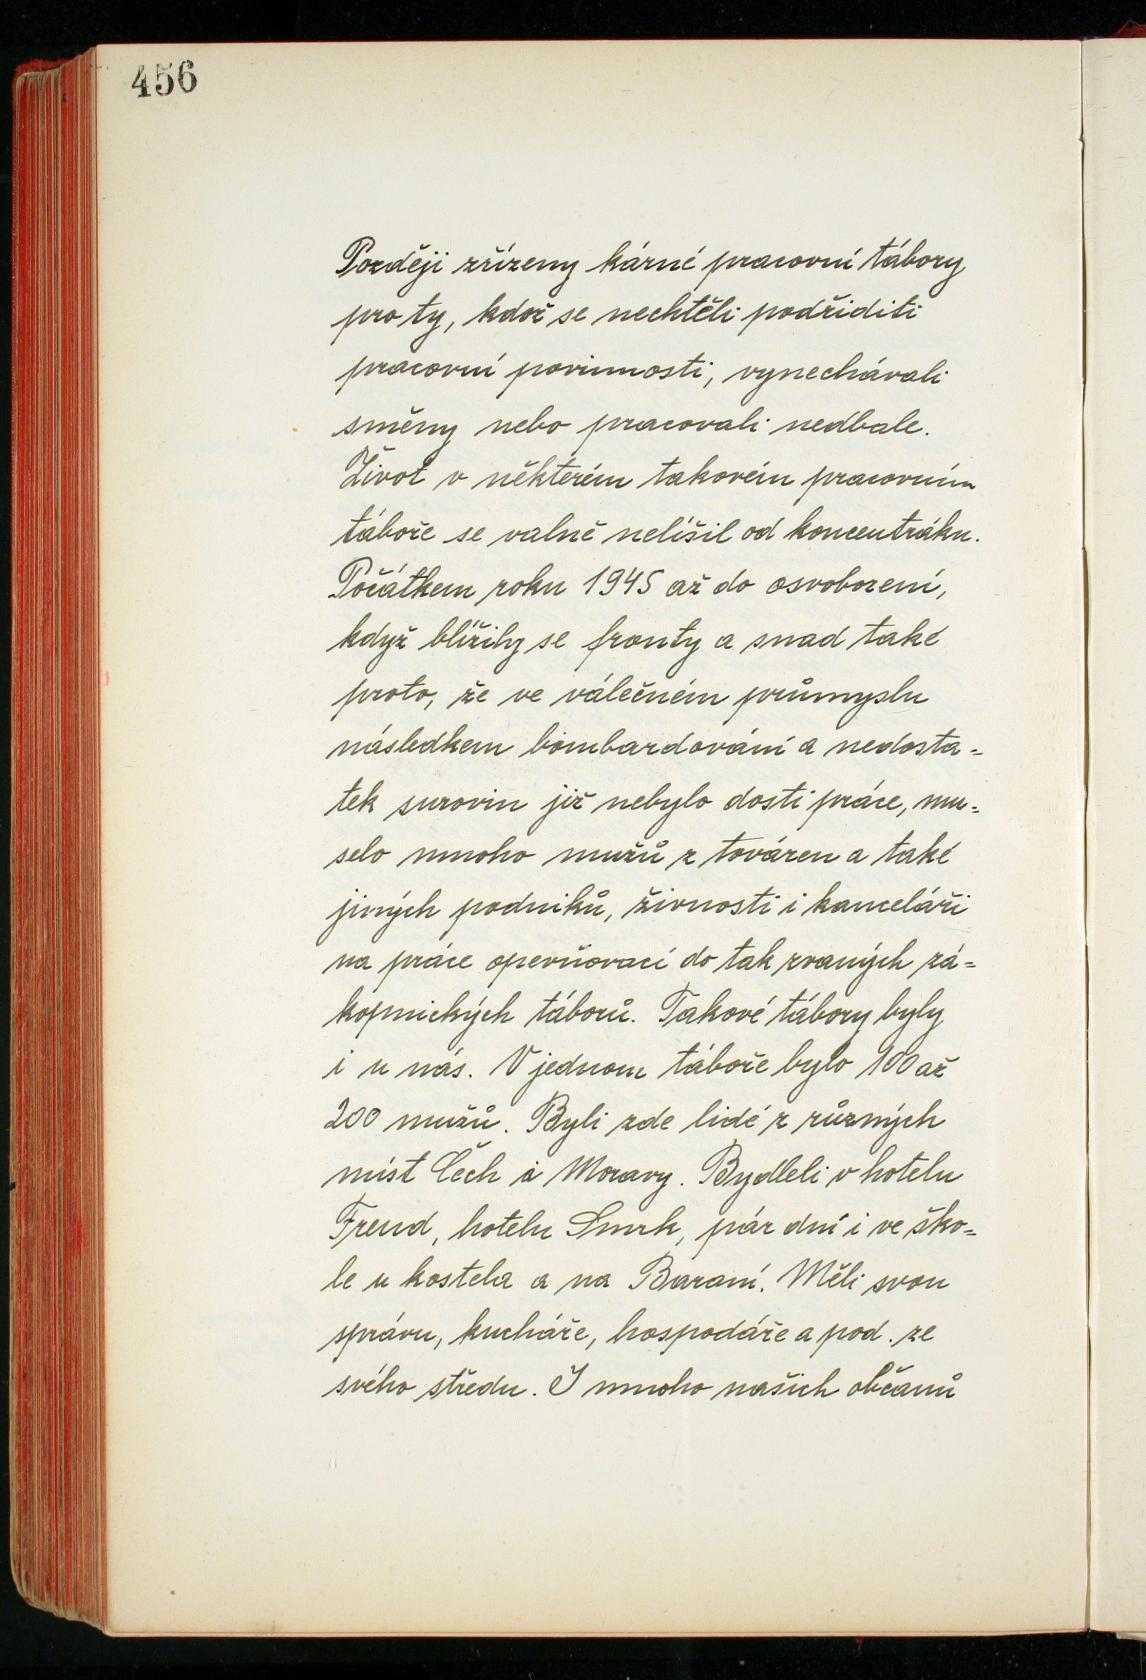 456
Později zřízeny kárné pracovní tábory
pro ty, kdož se nechtěli podřiditi
pracovní povinnosti, vynechávali
směny nebo pracovali nedbale.
Život v některém takovém pracovním
táboře se valně nelišil od koncentráku.
Počátkem roku 1945 až do osvobození,
když blížily se fronty a snad také
proto, že ve válečném průmyslu
následkem bombardování a nedosta=
tek surovin již nebylo dosti práce, mu=
selo mnoho mužů z továren a také
jiných podniků, živnosti i kanceláři
na práce opevňovací do tak zvaných zá=
kopnických táborů. Takové tábory byly
i u nás. V jednom táboře bylo 100 až
200 mužů. Byli zde lidé z různých
míst Čech i Moravy. Bydleli v hotelu
Freud, hotelu Smrk, pár dní i ve ško=
le u kostela a na Baraní. Měli svou
správu, kuchaře, hospodáře a pod. ze
svého středu. I mnoho našich občanů